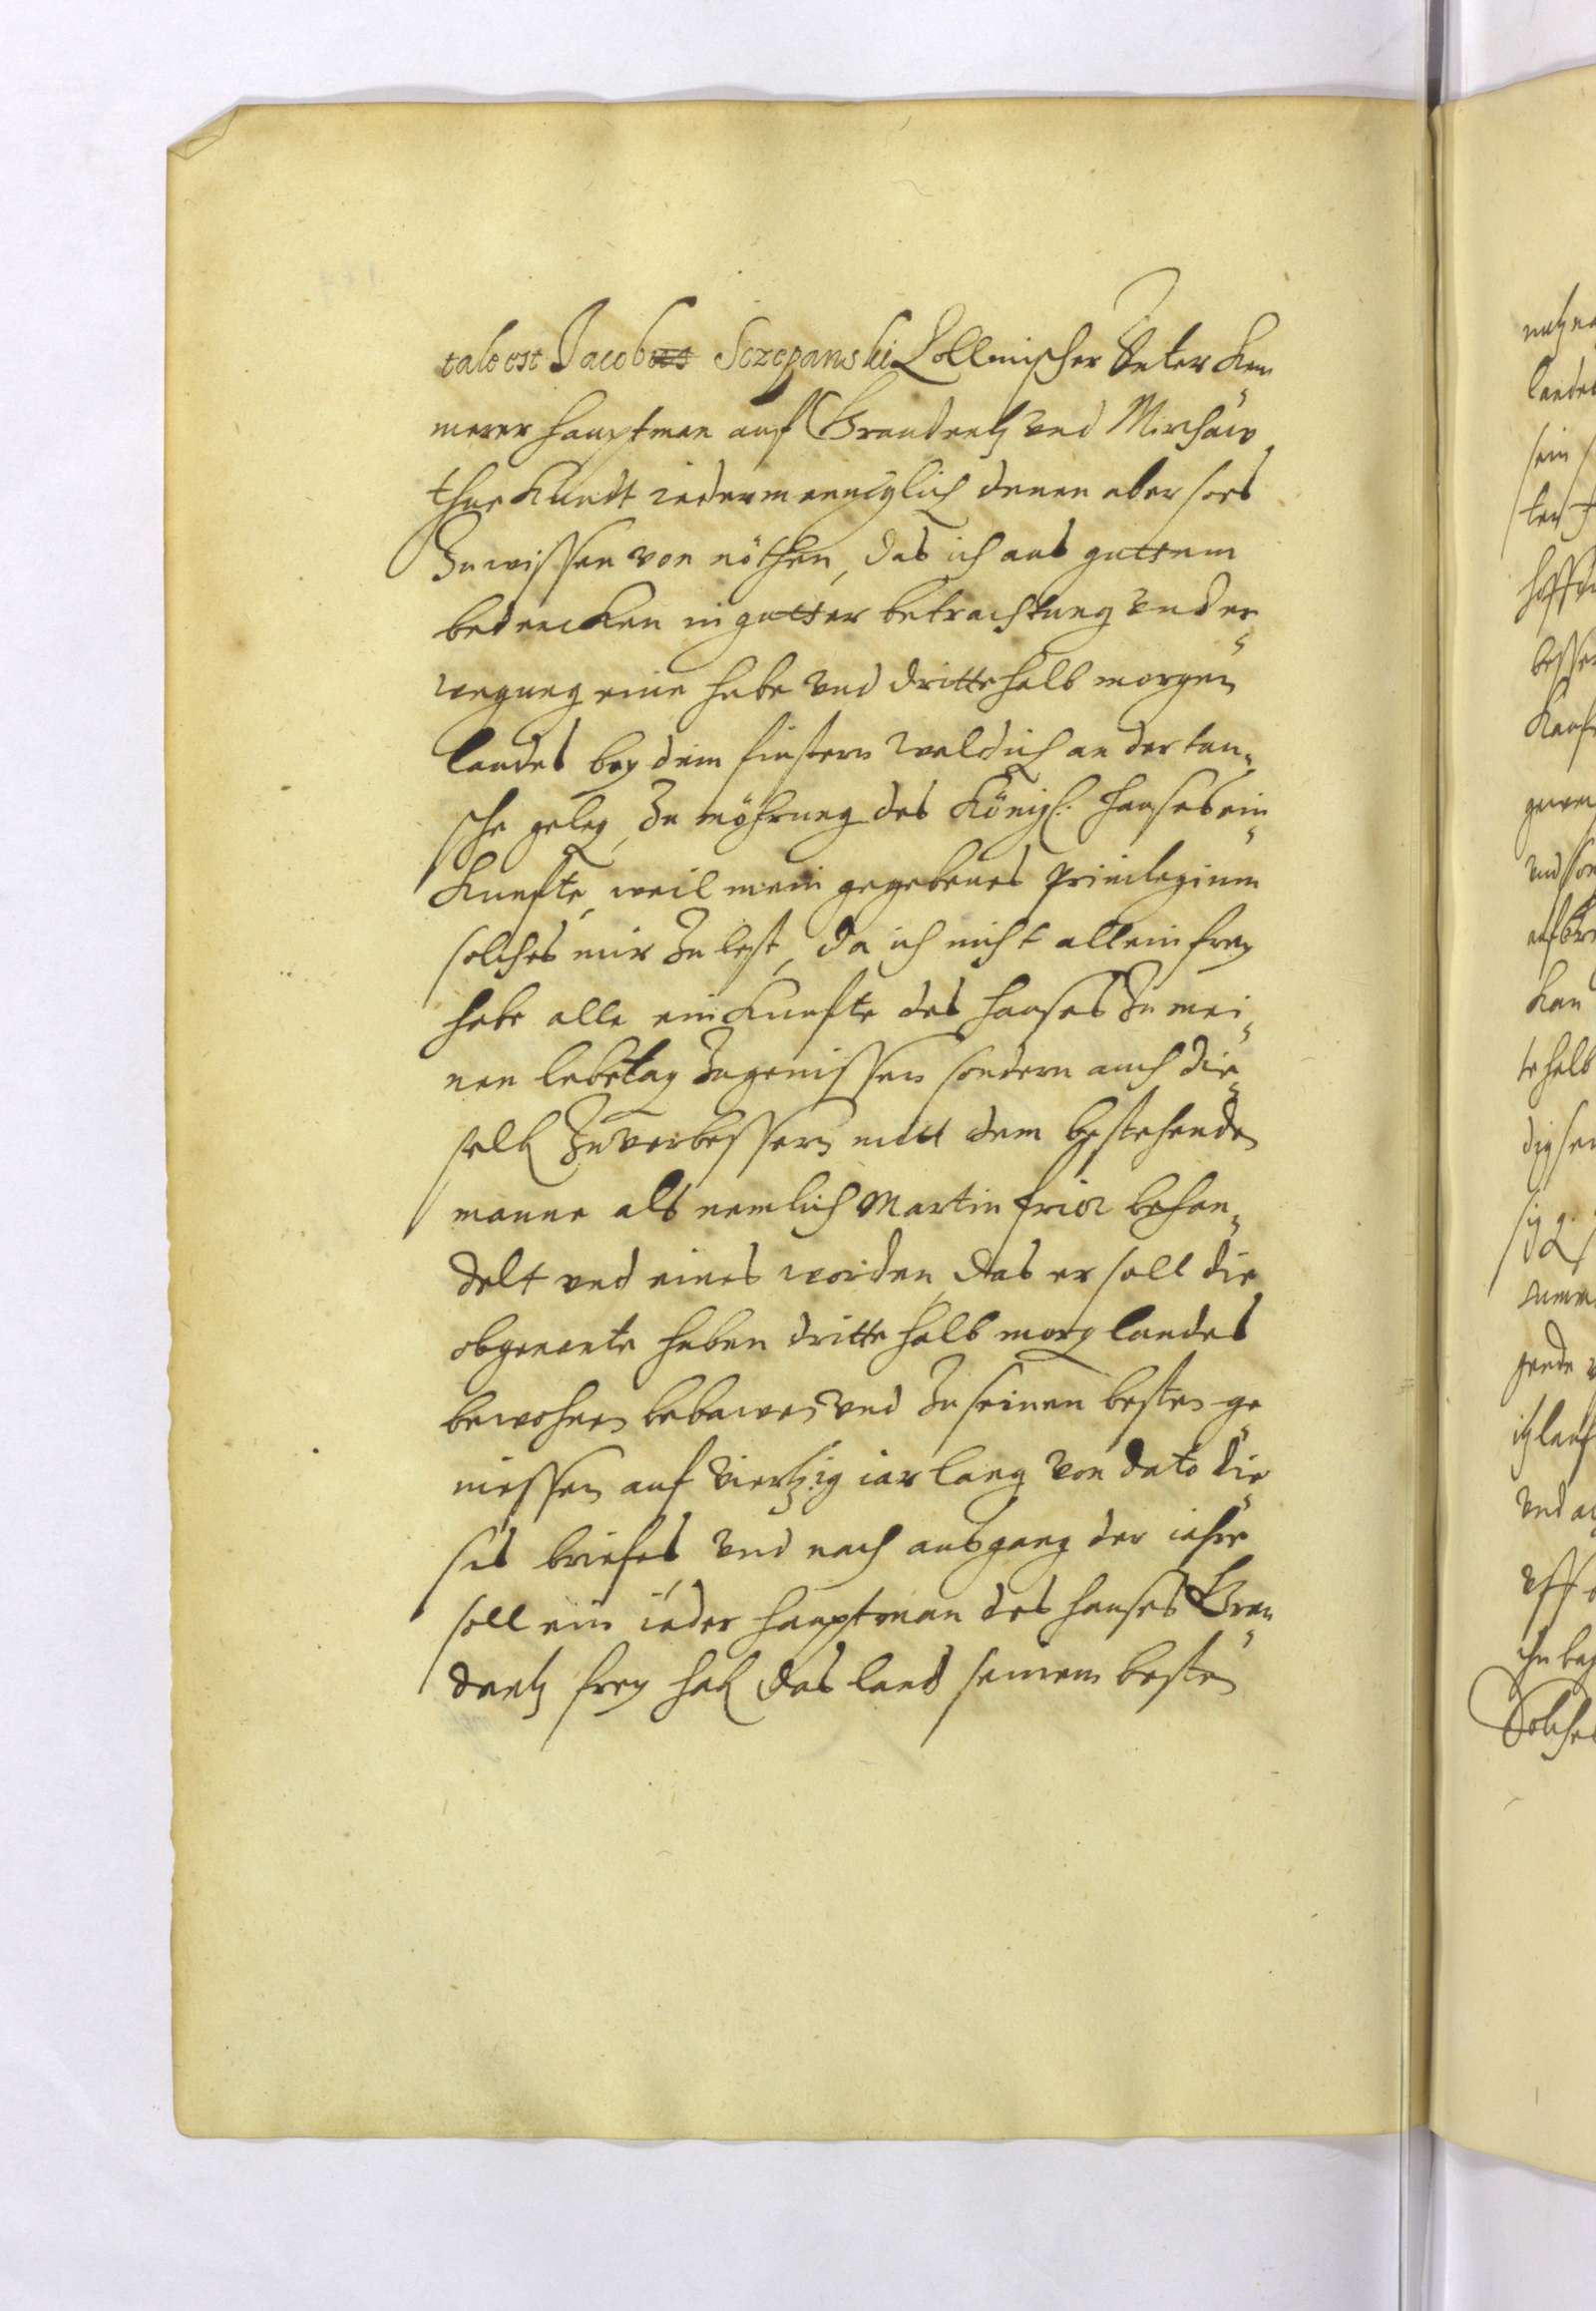 tale est Jacobus Sczepanski Collmischer Unter Kem„
merer Hauptman auf Graudentz und Mirchaw
thue Kundt iedermenniglich denen aber sots
Zu wissen von nöthen, das ich aus guttem
bedencken in gutter betrachtung und er„
wegung eine hube und drittehalb morgen
landes bey dem finstern waldich an der tau„
sche geleg, Zu möhrung des Königl: Hauses ein„
Kunfte, weil mein gegebenes Priuilegium
solches mir Zu lest, da ich nicht allein frey
habe alle einkunfte des hauses Zu mei„
nen lebetag Zugenissen sondern auch die„
selb Zuverbessern mitt dem bestehenden
manne als nemlich Martin frior behan„
delt und eines worden, das er soll die
obgenente huben dritte halb morg landes
bewohnen bebawen und Zu seinen besten ge„
niessen auf viertzig iar lang von dato die„
ses briefes, und nach ausgang der iahre
soll ein ieder Hauptman des hauses Grau„
dentz frey hab das land seinem besten